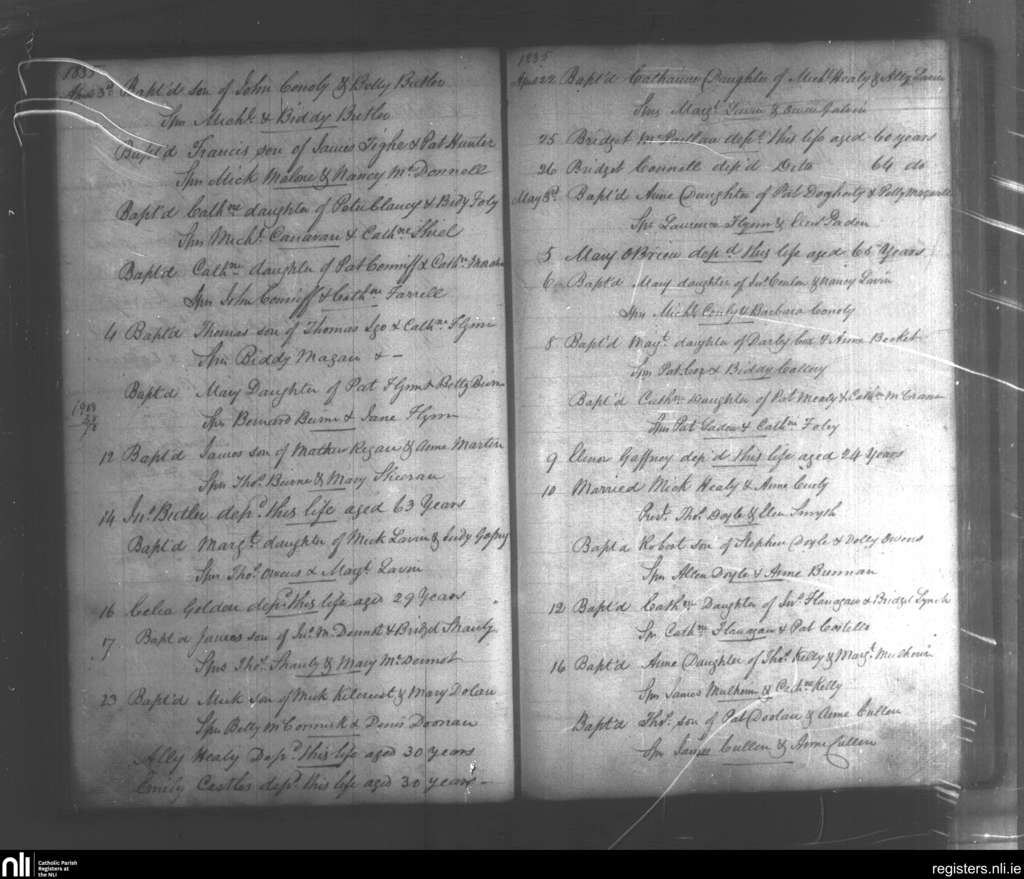 1835
Apl 3d Bapt'd son of John Conoly & Betty Butler
Spn Michl. & Biddy Butler
Bapt'd Francis son of James Tighe & Pat Hunter
Spn Mick Malone & Nancy McDonnell
Bapt'd Cathne daughter of Peter Clancy & Bidy Foly
Spn Michl. Canavan & Cathne Shiel
Bapt'd Cathne daughter of Pat Conniff & Cathn
Spn John Conniff & Cathne Farrell
4 Bapt'd Thomas son of Thomas Igo & Cathne Flynn
Spn Biddy Magan & -
Bapt'd Mary Daughter of Pat Flynn & Betty Burne
Spn Bernard Burne & Jane Flynn
12 Bapt'd James son of Mathew Regan & Anne Martin
Spn Thos. Burne & Mary Sheeran
14 Jno. Butler depd. this life aged 63 Years
Bapt'd Margt. daughter of Mick Lavin & Judy Gafny
Spn Thos. Owens & Margt. Lavin
16 Celia Golden depd. this life aged 29 Years
17 Bapt'd James son of Jno. McDermot & Bridget Shanly
Spns Thos. Shanly & Mary McDermot
23 Bapt'd Mick son of Mick Kilcrest & Mary Dolan
Spn Betty McCormick & Denis Doonan
Ally Healy Depd. this life aged 30 years
Emily Castles depd. this life aged 30 years -
1835
Apl 22 Bapt'd Catharine Daughter of Michl Healy & Ally Lavin
Spns Margt. Lavin & Owen Galvin
25 Bridget McPartlan depd. this life aged 60 years
26 Bridget Connell dep'd Dito 64 do
May 3d. Bapt'd Anne Daughter of Pat Dogherty & Polly
Spn Laurence Flynn & Elenr Paden
5 Mary OBrien depd this life aged 65 Years
6 Bapt'd Mary daughter of Jno. Conlon & Nancy Lavin
Spn Michl. Conly & Barbara Conoly
8 Bapt'd Mayt. daughter of Darby Cox & Anne Becket
Spn Pat Cox & Biddy Callery
Bapt'd Cathne Daughter of Pat Mealy & Cathne McCrann
Spn Pat Paden & Cathne Foley
9 Elenor Gaffney dep'd this life aged 24 Years
10 Married Mick Healy & Anne Curly
Prest. Thos. Doyle & Elen Smyth
Bapt'd Robert son of Stephen Doyle & Dolly Owens
Spn Allen Doyle & Anne Brennan
12 Bapt'd Cathne Daughter of Jno. Flanagan & Bridget Lynch
Spn Cathne Flanagan & Pat Costello
16 Bapt'd Anne Daughter of Thos. Kelly & Margt. Mulhern
Spn James Mulhern & Cathne Kelly
Bapt'd Thos. son of Pat Doolan & Anne Cullen
Spn James Cullen & Anne Cullen
nli
Catholic Parish
Registers at
the NLI
registers.nli.ie